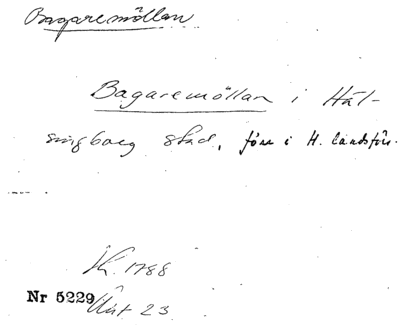 Bagaremöllan
Bagaremöllan i Häl-
singborg stad, förr i H. landsför.
Sk. 1788
Nr 5229
23